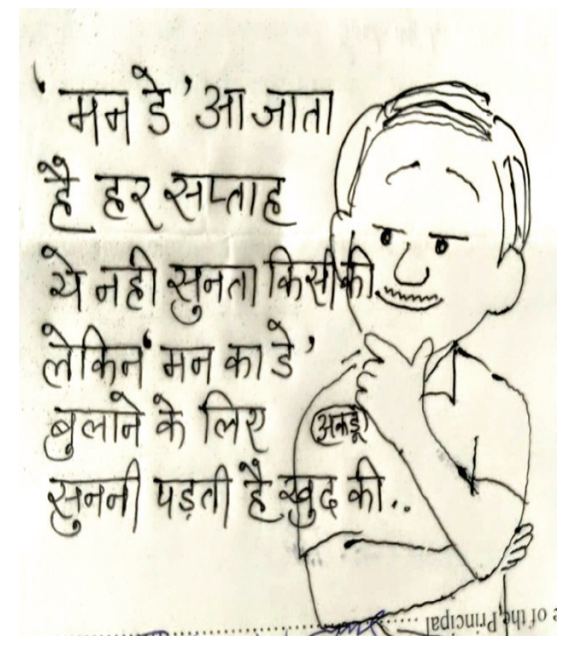 'मन डे' आ जाता
है हर सप्ताह
ये नही सुनता किसी की
लेकिन 'मन का डे'
बुलाने के लिए
सुननी पड़ती है खुद की..
अकड़ू
e of the Principal ....................